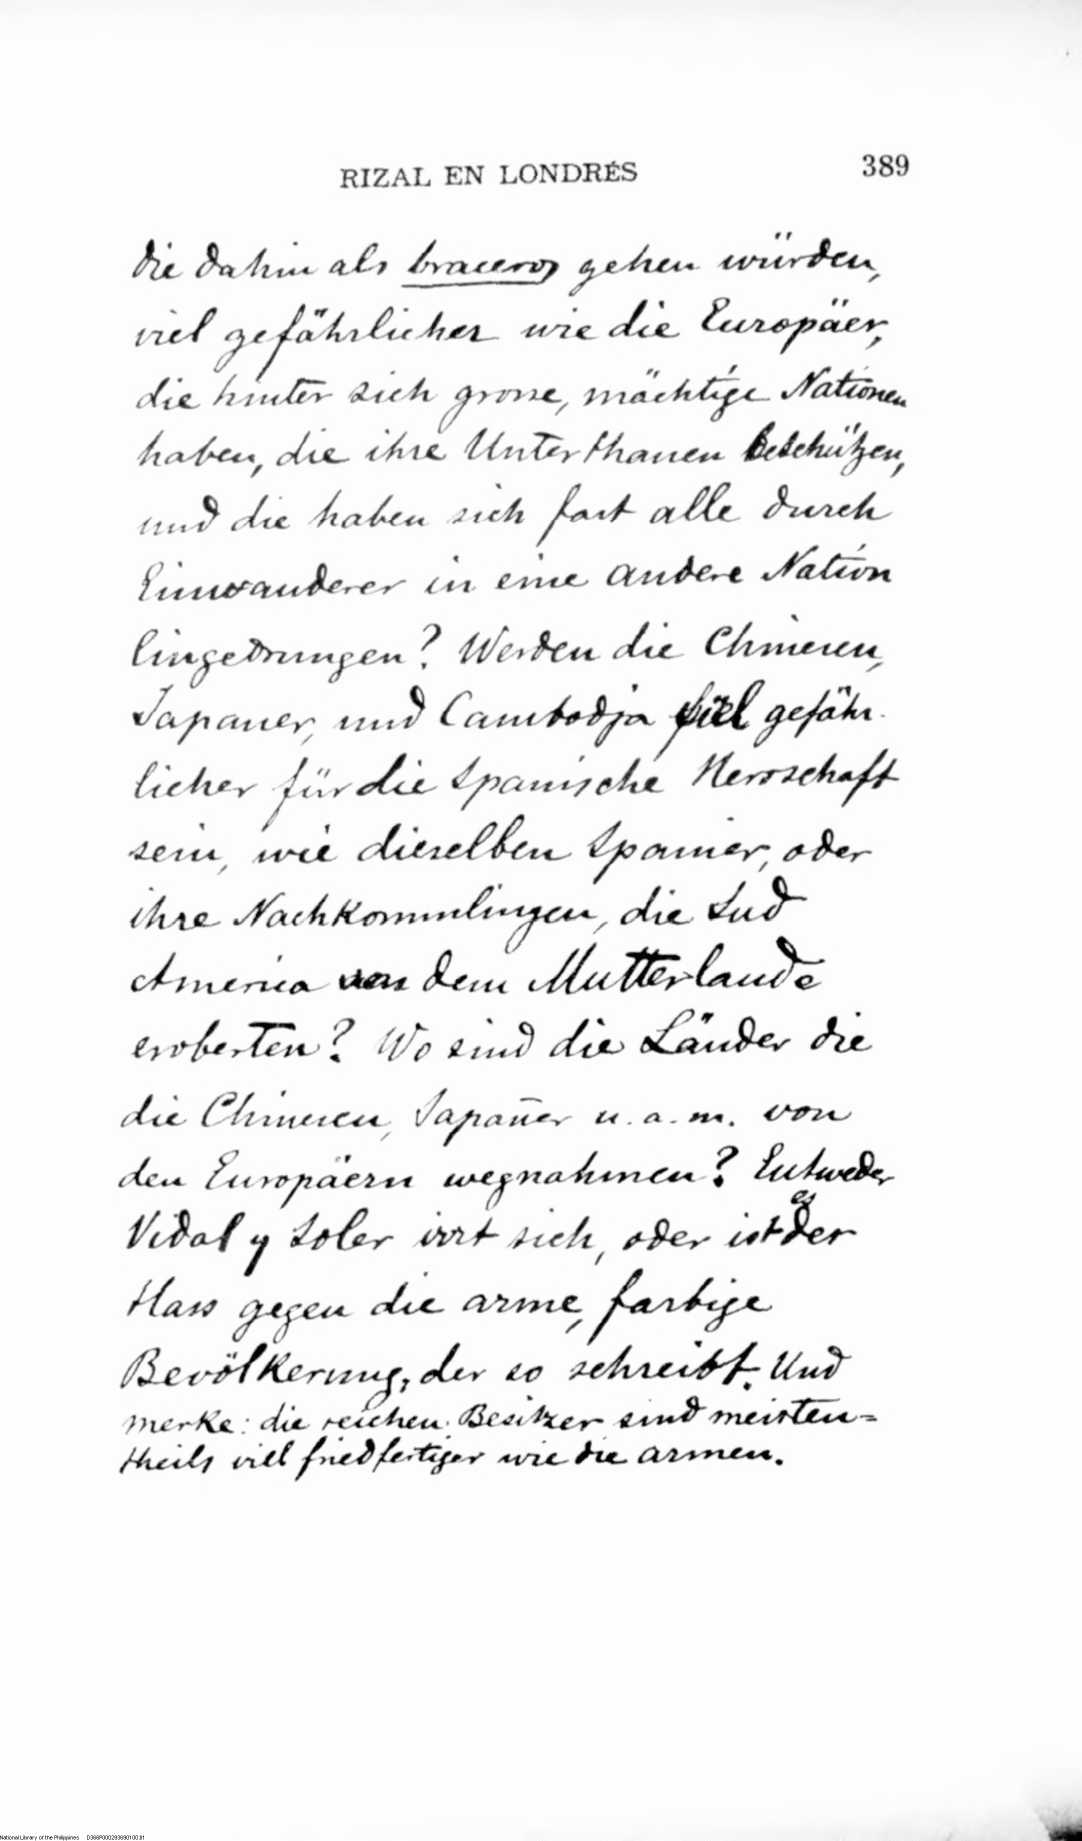 RIZAL EN LONDRÉS
389
die dahin als braceros gehen würden,
viel gefährlicher wie die Europäer,
die hinter sich grosse, mächtige Nationen
haben, die ihre Unterthanen beschützen,
und die haben sich fast alle durch
Einwanderer in eine andere Nation
Eingedrungen? Werden die Chinesen,
Japaner, und Cambodja viel gefähr-
licher für die Spanische Herrschaft
sein, wie dieselben Spanier, oder
ihre Nachkommlingen, die Sud
America von dem Mutterlande
eroberten? Wo sind die Länder die
die Chinesen, Japañer u. a. m. von
den Europäern wegnahmen? Entweder
Vidal y Soler irrt sich, oder ist es der
Hass gegen die arme, farbige
Bevölkerung, der so schreibt. Und
merke: die reichen Besitzer sind meisten=
theils viel friedfertiger wie die armen.
National Library of the Philippines